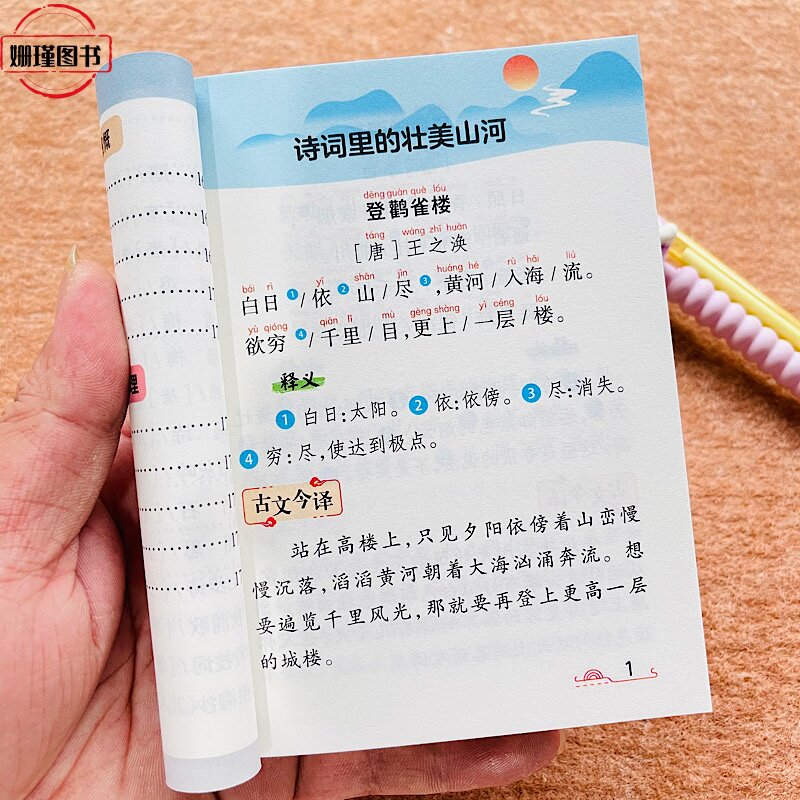 姗瑾图书
诗词里的壮美山河
dēng guàn què lóu
登鹳雀楼
táng wáng zhī huàn
[唐]王之涣
bái rì yī shān jìn huáng hé rù hǎi liú
白日①/依②山/尽③,黄河/入海/流。
yù qióng qiān lǐ mù gèng shàng yì céng lóu
欲穷④/千里/目,更上/一层/楼。
释义
①白日:太阳。②依:依傍。③尽:消失。
④穷:尽,使达到极点。
古文今译
站在高楼上,只见夕阳依傍着山峦慢
慢沉落,滔滔黄河朝着大海汹涌奔流。想
要遍览千里风光,那就要再登上更高一层
的城楼。
1